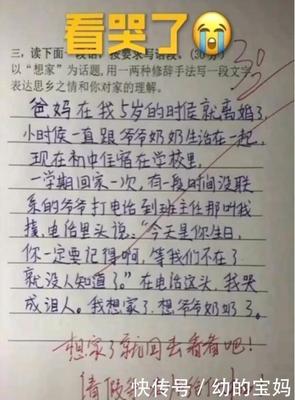 看哭了😭
三、读下面一段话，按要求写语段。(30分)
30
以“想家”为话题，用一两种修辞手法写一段文字
表达思乡之情和你对家的理解。
爸妈在我5岁的时候就离婚了
小时候一直跟爷爷奶奶生活在一起，
现在初中住宿在学校里
一学期回家一次，有一段时间没联
系的爷爷打电话到班主任那叫我
接，电话里头说：“今天是你生日，
你一定要记得啊，等我们不在了
就没人知道了。”在电话这头，我哭
成泪人。我想家了，想爷爷奶奶了。
想家了就回去看看吧！
请假
快传号／幼的宝妈